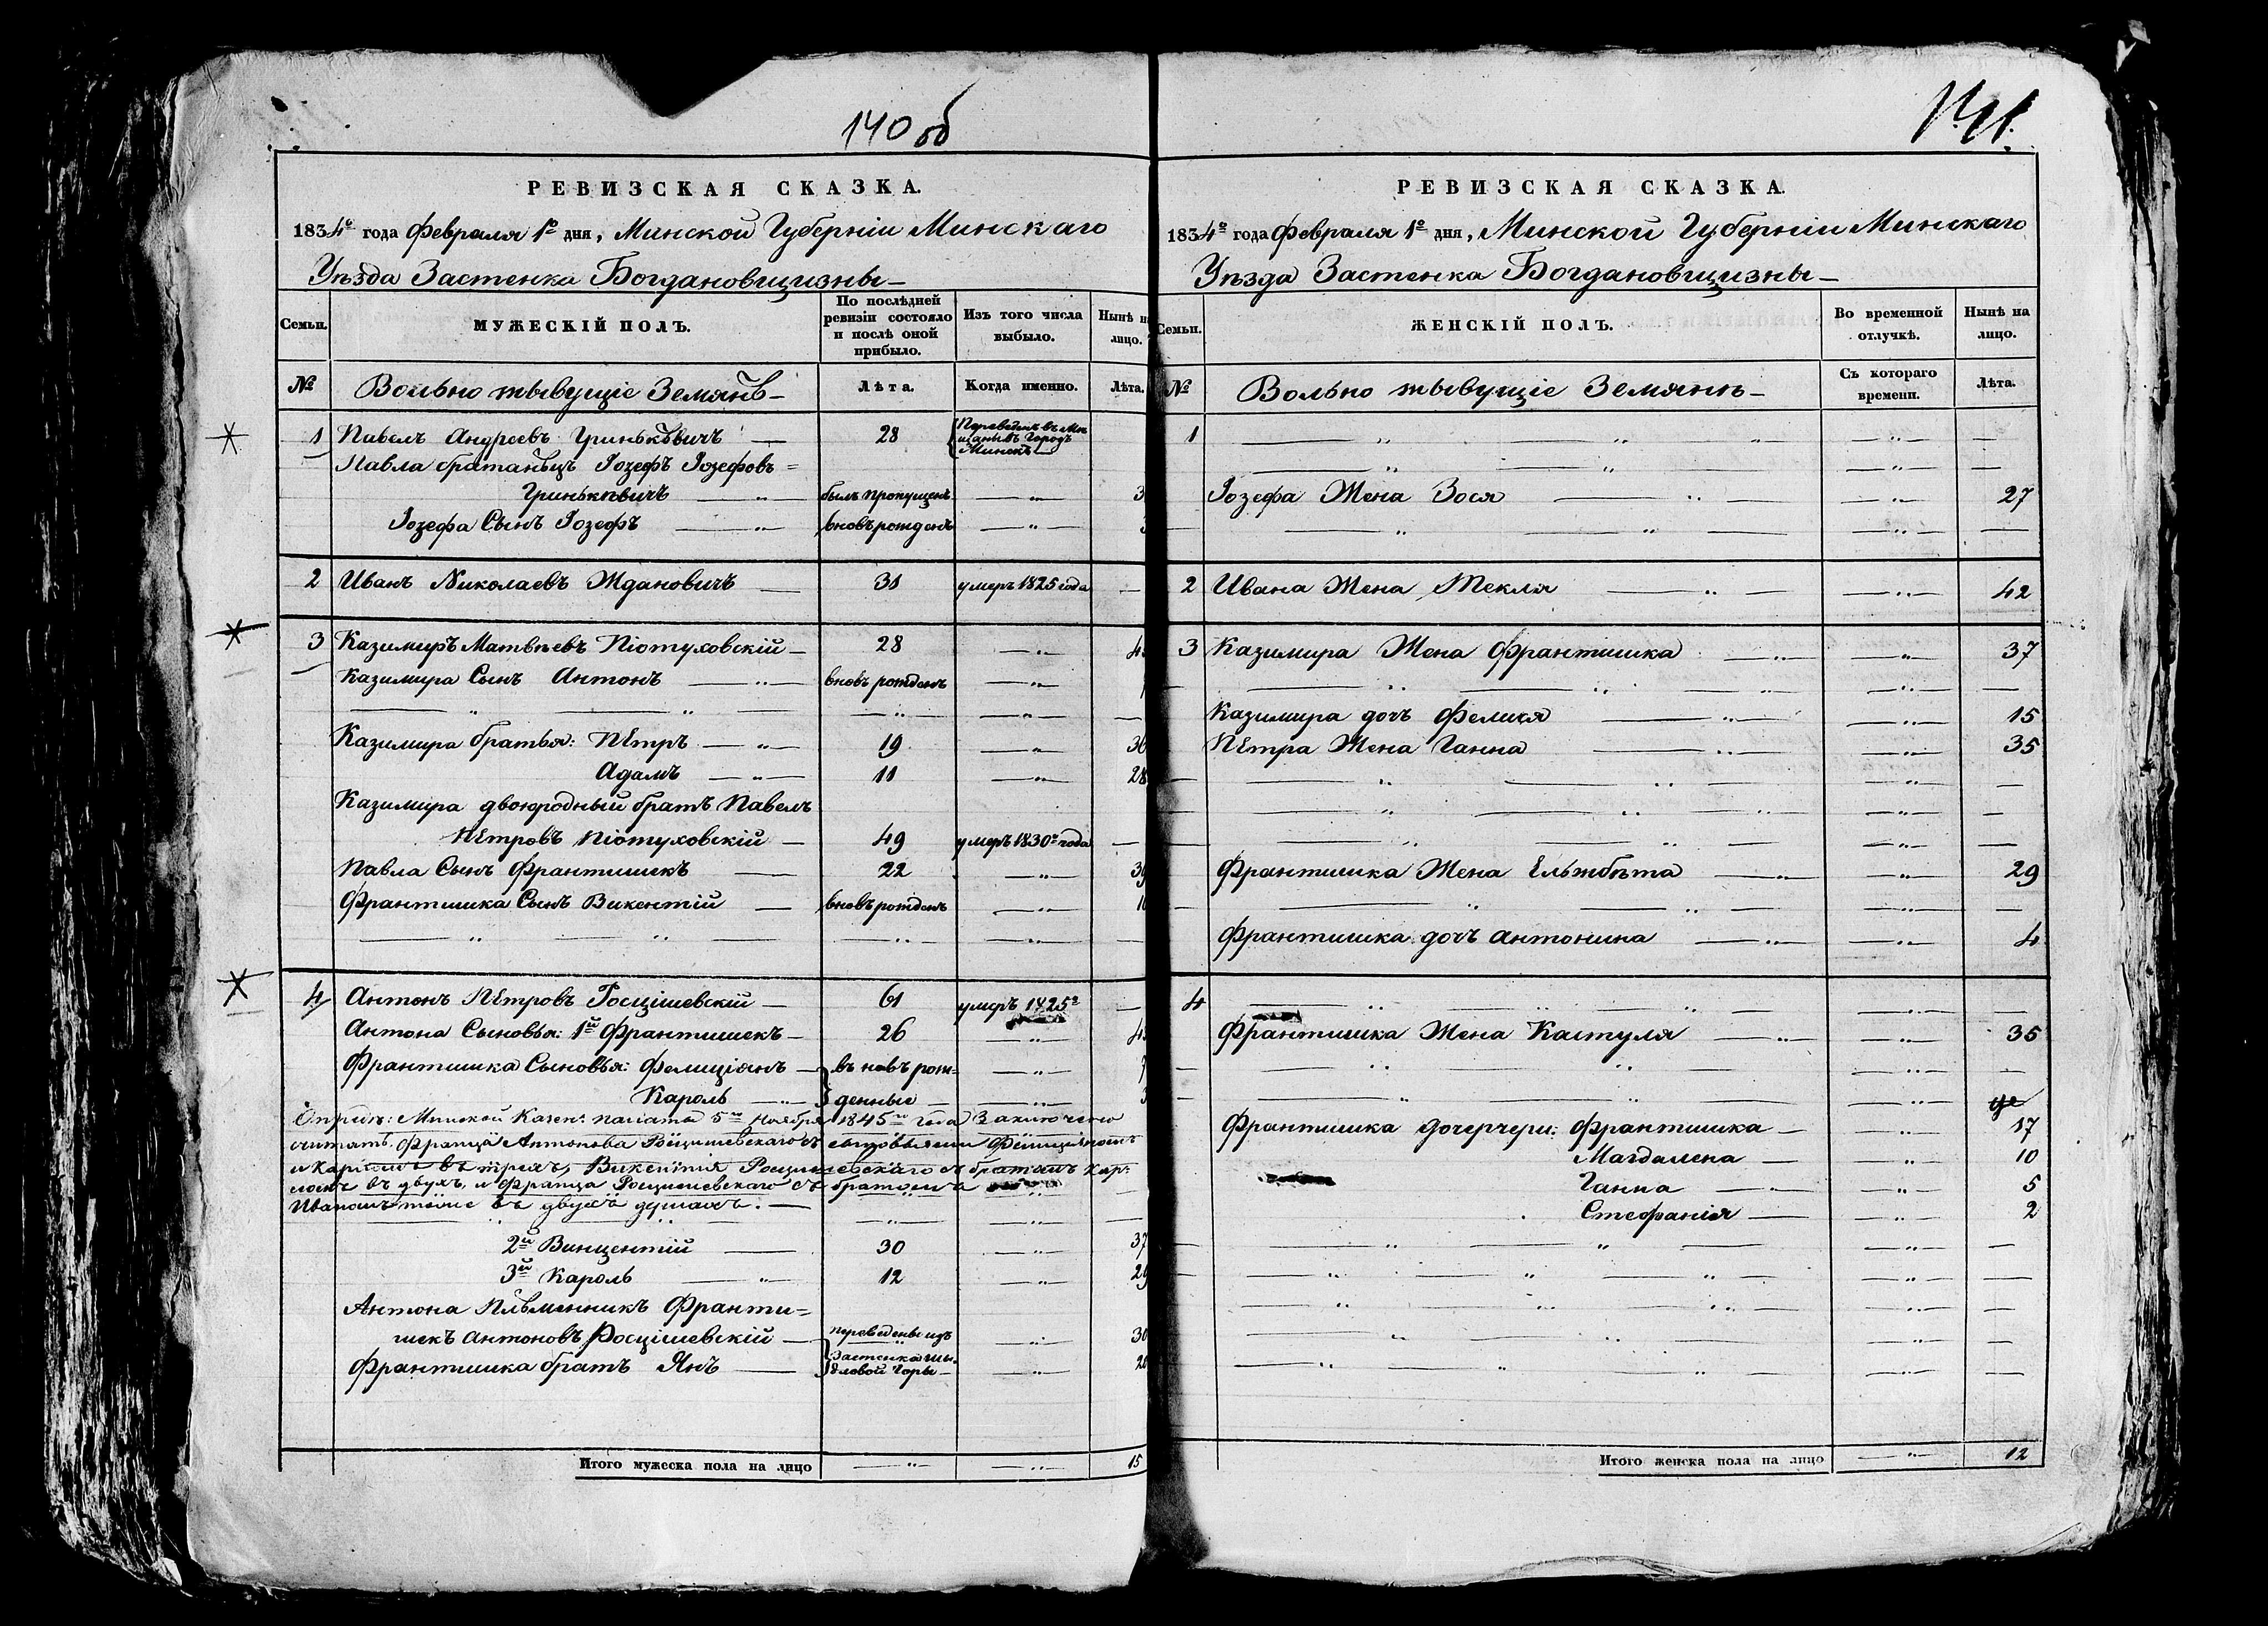 140 об
РЕВИЗСКАЯ СКАЗКА.
1834го года Февраля 1го дня, Минской Губерніи Минскаго
Уѣзда Застенка Богдановщизны —
Семьи.
МУЖЕСКІЙ ПОЛЪ.
По послѣдней ревизіи состояло и послѣ оной прибыло.
Изъ того числа выбыло.
Нынѣ на лицо.
№
Вольно жывущіе Земянѣ —
Лѣта.
Когда именно.
Лѣта.
1 Павелъ Андреевъ Гринькѣвичъ — 28 Переведенъ въ Мѣщаны въ Городъ Минскъ
Павла братанѣцъ Іозефъ Іозефовъ =
Гринькѣвичъ — былъ пропущенъ — 3
Іозефа Сынъ Іозефъ — вновъ рожденъ —
2 Иванъ Николаевъ Ждановичъ — 31 умеръ 1825 года —
3 Казимиръ Матвѣевъ Піотуховскій — 28 — 4
Казимира Сынъ Антонъ — вновъ рожденъ — 1
Казимира братья: Пётръ — 19 — 36
Адамъ — 11 — 28
Казимира двоюродный братъ Павелъ
Пётровъ Піотуховскій — 49 умеръ 1830го года —
Павла Сынъ Франтишекъ — 22 — 39
Франтишка Сынъ Викентій — вновъ рожденъ — 10
4 Антонъ Пётровъ Росцішевскій — 61 умеръ 1825го —
Антона Сыновья: 1й Франтишекъ — 26 — 4
Франтишка Сыновья: Фелиціянъ — въ новъ рож= — 7
Кароль — денные — 3
Оприд: Минской Казен. палаты 5го Ноября 1845го года Заключено
считать. Франца Антонова Росцишевскаго съ сыновьями Фелиціяномъ
и Каролемъ въ трехъ, Викентія Росцишевскаго съ братомъ Кар-
ломъ въ двухъ, и Франца Росцишевскаго съ братомъ
Иваномъ тоже въ двухъ душахъ. —
2й Винцентій — 30 — 37
3й Кароль — 12 — 29
Антона Плѣменникъ Франти=
шекъ Антоновъ Росцішевскій — переведены изъ — 30
Франтишка братъ Янъ — Застенка Шыдловой Горы — 20
Итого мужеска пола на лицо — 15
141.
РЕВИЗСКАЯ СКАЗКА.
1834го года Февраля 1го дня, Минской Губерніи Минскаго
Уѣзда Застенка Богдановщизны —
Семьи.
ЖЕНСКІЙ ПОЛЪ.
Во временной отлучкѣ.
Нынѣ на лицо.
№
Вольно жывущіе Земянѣ —
Съ котораго времени.
Лѣта.
1
Іозефа Жена Зося — 27
2 Ивана Жена Текля — 42
3 Казимира Жена Франтишка — 37
Казимира дочъ Фелися — 15
Пётра Жена Ганна — 35
Франтишка Жена Ельжбѣта — 29
Франтишка дочъ Антонина — 4
4
Франтишка Жена Кастуля — 35
Франтишка дочерчери: Франтишка — 17
Магдалена — 10
Ганна — 5
Стефанія — 2
Итого женска пола на лицо — 12